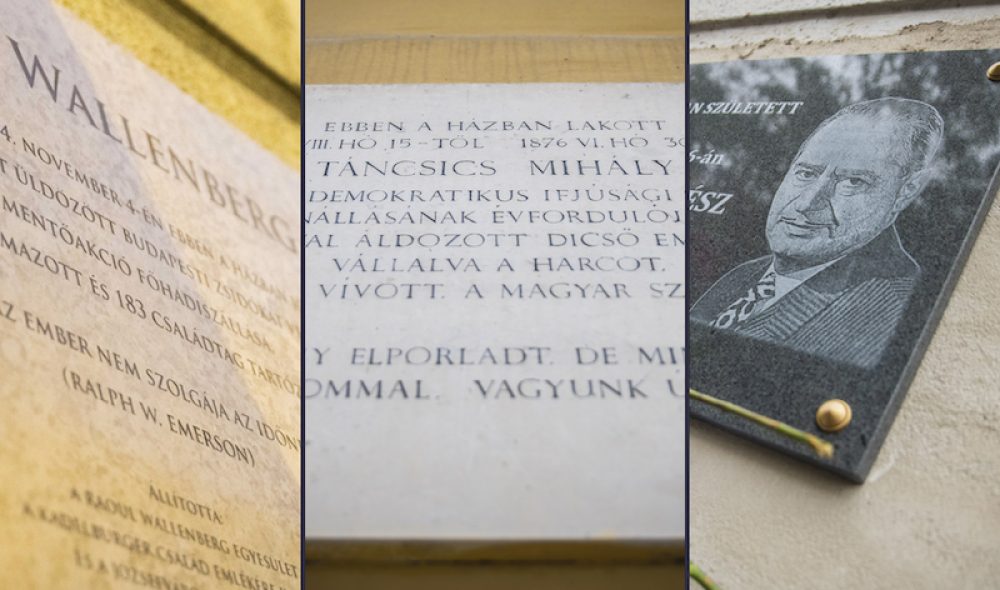 WALLENBERG
4. NOVEMBER 4-ÉN EBBEN A HÁZBAN
T ÜLDÖZÖTT BUDAPESTI ZSIDÓKAT
MENTŐAKCIÓ FŐHADISZÁLLÁSA.
MAZOTT ÉS 183 CSALÁDTAG TARTÓZ
AZ EMBER NEM SZOLGÁJA AZ IDŐN
(RALPH W. EMERSON)
ÁLLÍTOTTA:
A RAOUL WALLENBERG EGYESÜLET
A KADELBURGER CSALÁD EMLÉKÉRE
ÉS A
EBBEN A HÁZBAN LAKOTT
VIII. HÓ 15-TŐL 1876 VI. HÓ 30
TÁNCSICS MIHÁLY
DEMOKRATIKUS IFJÚSÁGI
NÁLLÁSÁNAK ÉVFORDULÓJ
AL ÁLDOZOTT DICSŐ EM
VÁLLALVA A HARCOT,
VÍVOTT. A MAGYAR SZ
Y ELPORLADT. DE MI
OMMAL. VAGYUNK Ú
N SZÜLETETT
-án
ÉSZ